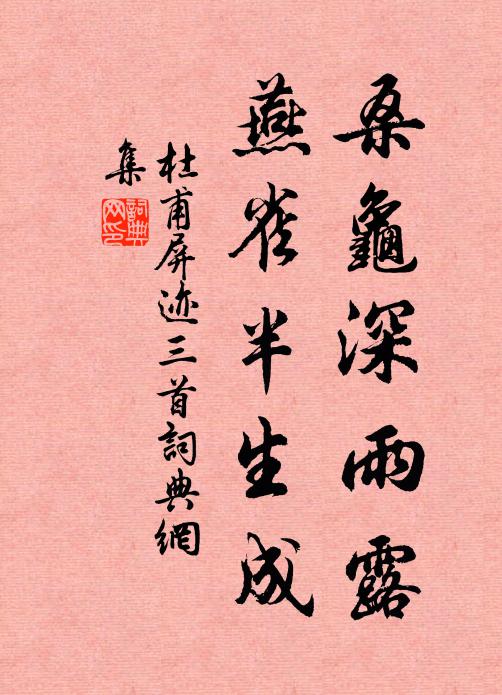 桑龜深雨露
燕雀半生成
杜甫屏迹三首詞典網
集
詞典网印